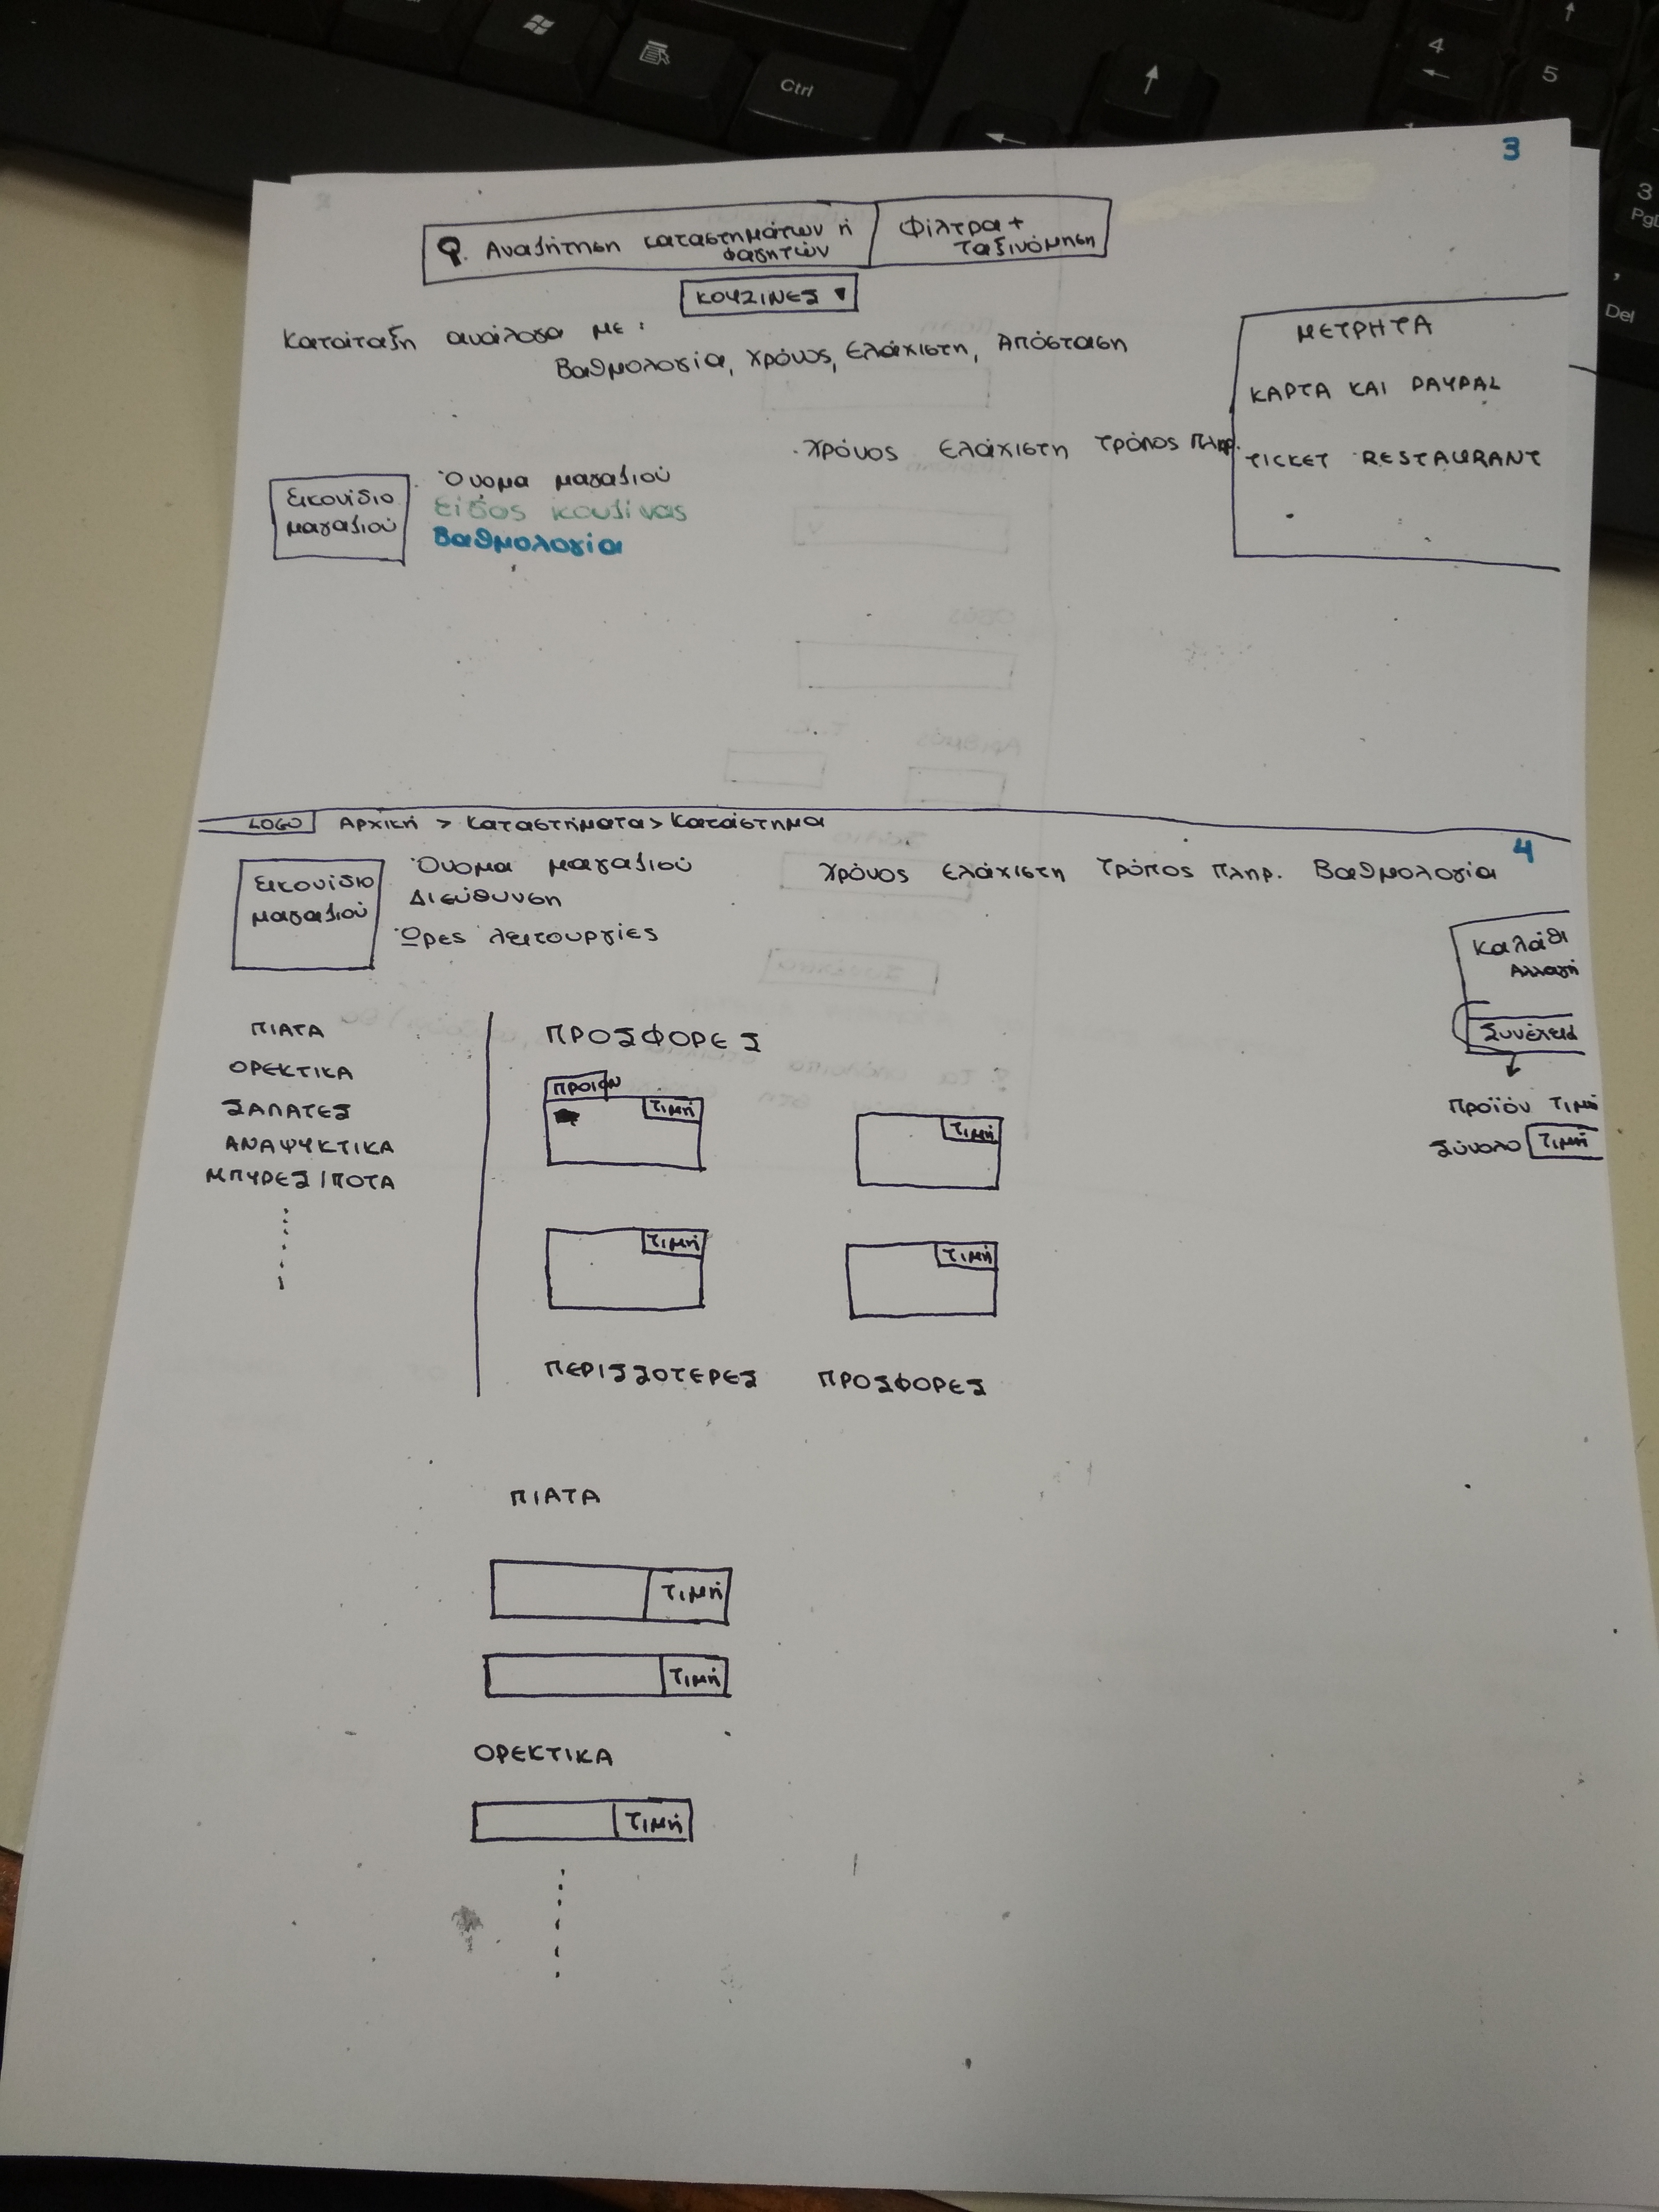 Ctrl
4
5
3
Del
3
Αναζήτηση καταστημάτων ή
φαγητών
Φίλτρα +
Ταξινόμηση
ΚΟΥΖΙΝΕΣ
Κατάταξη ανάλογα με:
Βαθμολογία, Χρόνος, Ελάχιστη, Απόσταση
ΜΕΤΡΗΤΑ
ΚΑΡΤΑ ΚΑΙ PAYPAL
TICKET RESTAURANT
Χρόνος Ελάχιστη Τρόπος Πληρ.
Εικονίδιο
μαγαζιού
Όνομα μαγαζιού
Είδος κουζίνας
Βαθμολογία
LOGO Αρχική > Καταστήματα > Κατάστημα
4
Εικονίδιο
μαγαζιού
Όνομα μαγαζιού
Διεύθυνση
Ώρες λειτουργίες
Χρόνος Ελάχιστη Τρόπος Πληρ. Βαθμολογία
Καλάθι
Αλλαγή
Συνέχεια
Προϊόν Τιμή
Σύνολο Τιμή
ΠΙΑΤΑ
ΟΡΕΚΤΙΚΑ
ΣΑΛΑΤΕΣ
ΑΝΑΨΥΚΤΙΚΑ
ΜΠΥΡΕΣ/ΠΟΤΑ
ΠΡΟΣΦΟΡΕΣ
ΠΡΟΙΟΝ
Τιμή
Τιμή
Τιμή
Τιμή
ΠΕΡΙΣΣΟΤΕΡΕΣ ΠΡΟΣΦΟΡΕΣ
ΠΙΑΤΑ
Τιμή
Τιμή
ΟΡΕΚΤΙΚΑ
Τιμή